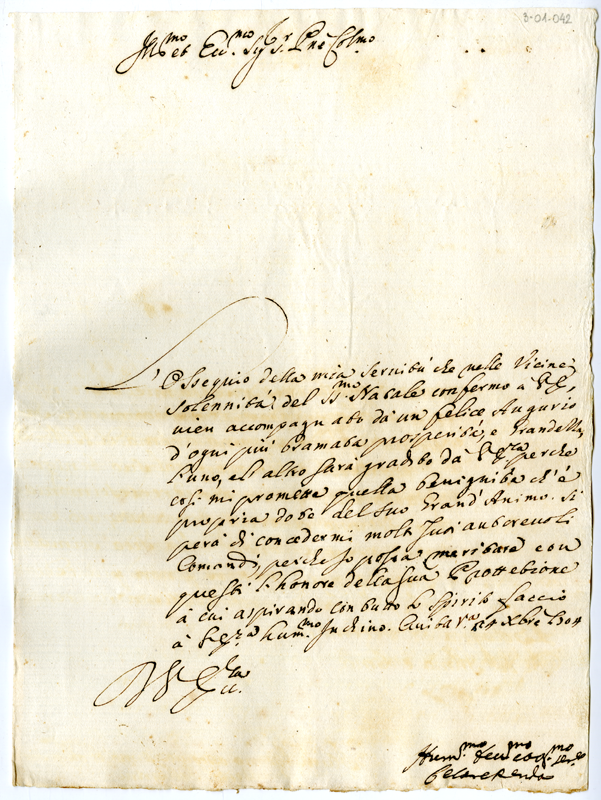 3-01-042
Ill.mo et Ecc.mo Sig.r Pne Col.mo
L'Ossequio della mia servitù che nelle Vicine
solennità del SS.mo Natale confermo a V.E.,
vien accompagnato da un felice Augurio
d'ogni più bramata prosperità, e Grandezza,
l'uno, et altro sarà gradito da V.Ecc.za perche
così mi promette quella benignità ch'è
propria dote del suo Grand'Animo. Si
però di concedermi molti suoi autorevoli
Comandi, perche io possa meritare con
questi l'honore della sua Prottetione
à cui aspirando con tutto lo spirito faccio
à V.Ecc.za hum.mo Inchino.
Di V. Ecc.za
Hum.mo Dev.mo et Obl.mo Ser.re